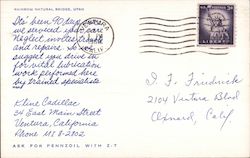 RAINBOW NATURAL BRIDGE, UTAH
It's been 90 days since
we serviced your car.
Neglect invites trouble
and repairs. So we
suggest you drive in
for vital lubrication
work performed here
by trained specialists.
Kline Cadillac
34 East Main Street
Ventura, California
Phone MI 8-2802
ASK FOR PENNZOIL WITH Z-7
VENTURA
LIBERTY
3¢
J. F. Friedrich
2104 Ventura Blvd
Oxnard, Calif.